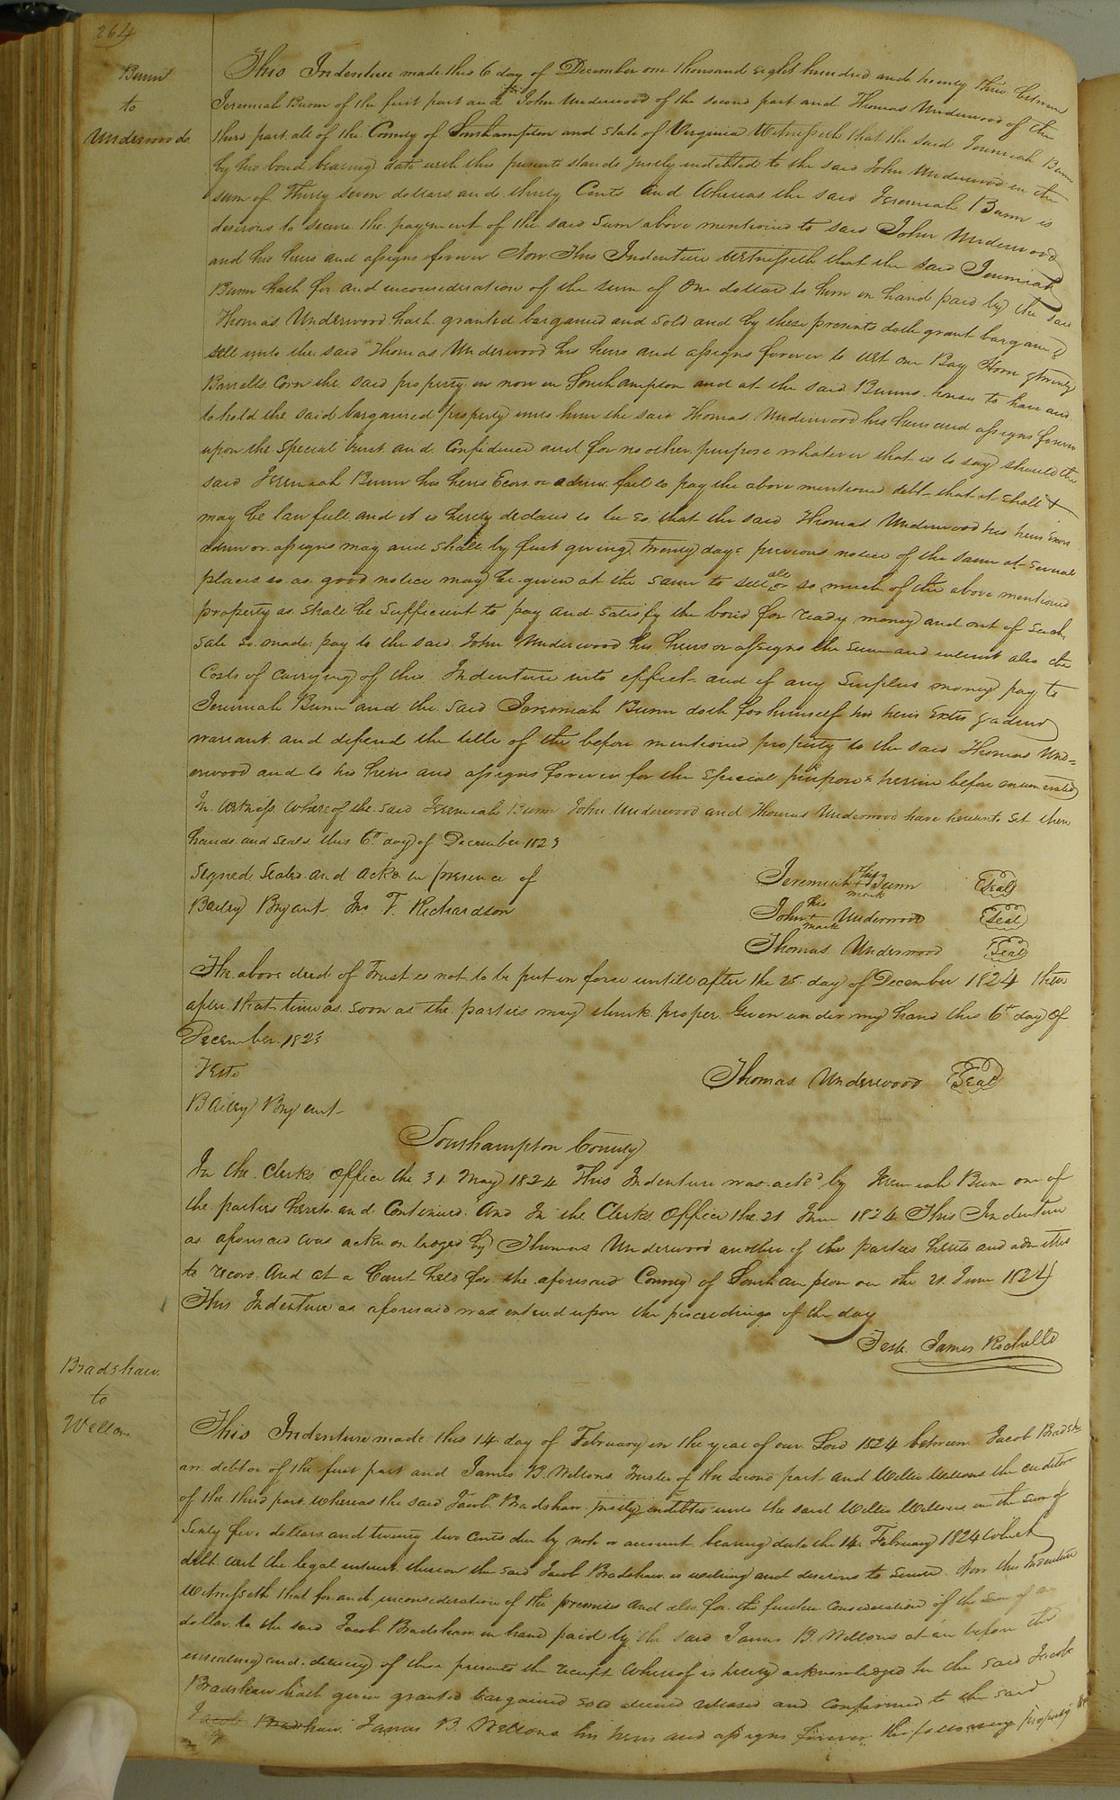 264
Bunn
to
Underwoods
This Indenture made this 6 day of December one thousand eight hundred and twenty three between
Jeremiah Bunn of the first part and John Underwood of the second part and Thomas Underwood of the
third part all of the County of Southampton and State of Virginia Witnesseth that the said Jeremiah Bunn
by his bond bearing date with this presents stands justly indebted to the said John Underwood in the
sum of Thirty seven dollars and thirty Cents and Whereas the said Jeremiah Bunn is
desirous to secure the payment of the said Sum above mentioned to said John Underwood
and his heirs and assigns forever Now This Indenture Witnesseth that the said Jeremiah
Bunn hath for and inconsideration of the sum of One dollar to him in hand paid by the said
Thomas Underwood hath granted bargained and sold and by these presents doth grant bargain &
sell unto the said Thomas Underwood his heirs and assigns forever to wit one Bay
Barrells Corn the said property is now in Southampton and at the said Bunns house to have and
to hold the said bargained property unto him the said Thomas Underwood his heirs and assigns forever
upon the special trust and Confidence and for no other purpose whatever that is to say should the
said Jeremiah Bunn his heirs Ecors or admrs fail to pay the above mentioned debt that it shall &
may be lawfull and it is hereby declard to be so that the said Thomas Underwood his heirs Exors
admr or assigns may and shall by first giving twenty days previous notice of the same at several
places so as good notice may be given at the same to sell all or so much of the above mentioned
property as shall be sufficient to pay and satisfy the bond for ready money and out of such
Sale so made pay to the said John Underwood his heirs or assigns the sum and interest also the
Costs of carrying of this Indenture into effect and if any Surplus money pay to
Jeremiah Bunn and the said Jeremiah Bunn doth for himself his heirs Extrs & admrs
warrant and defend the title of the before mentioned property to the said Thomas Und=
erwood and to his heirs and assigns forever for the special purposes herein before enumerated
In Witness Whereof the said Jeremiah Bunn John Underwood and Thomas Underwood have hereunto set their
hands and seals this 6th day of December 1823
Signed Seald and ackd in presence of
Jeremiah his + mark Bunn Seal
Bailey Bryant Jno T. Richardson
John his + mark Underwood Seal
Thomas Underwood Seal
The above deed of Trust is not to be put in force untill after the 25 day of December 1824 then
after that time as soon as the parties may think proper Given under my hand this 6th day of
December 1823
Teste
Thomas Underwood Seal
Bailey Bryant
Southampton County
In the Clerks Office the 31 May 1824 This Indenture was ackd by Jeremiah Bunn one of
the parties hereto and Continued And In the Clerks Office the 21 June 1824 This Indenture
as aforesaid was acknowledged by Thomas Underwood another of the parties hereto and admitted
to record And at a Court held for the aforesaid County of Southampton on the 21 June 1824
This Indenture as aforesaid was entered upon the proceedings of the day
Teste James Rochelle
Bradshaw
to
Wellons
This Indenture made this 14 day of February in the year of our Lord 1824 between Jacob Bradsh
aw debtor of the first part and James B. Wellons trustee of the second part and Willie Wellons the creditor
of the third part Whereas the said Jacob Bradshaw justly indebted unto the said Willie Wellons in the sum of
Sixty five dollars and twenty two cents due by note or account bearing date the 14 February 1824 which
debt with the legal interest thereon the said Jacob Bradshaw is willing and desirous to secure Now this Indenture
Witnesseth that for and inconsideration of the premises and also for the further Consideration of the sum of one
dollar to the said Jacob Bradshaw in hand paid by the said James B. Wellons at or before the
ensealing and delivery of these presents the receipt Whereof is hereby acknowledged he the said Jacob
Bradshaw hath given granted bargained sold released and confirmed to the said
Jacob Bradshaw James B. Wellons his heirs and assigns forever the following property